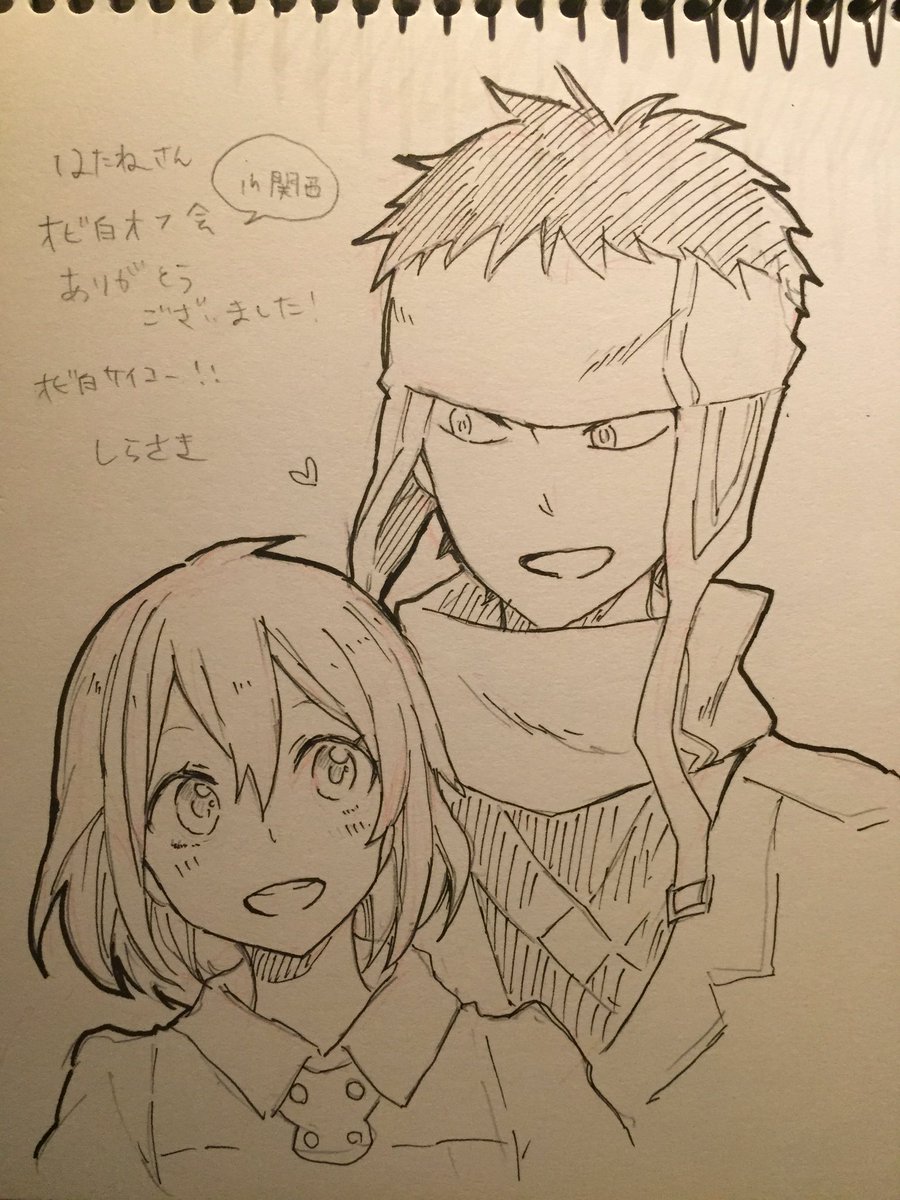 はたねさん
in 関西
オビ白オフ会
ありがとう
ございました!
オビ白サイコー!!
しらさき